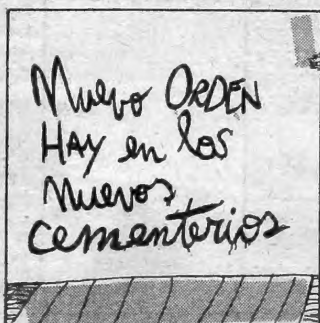 Nuevo ORDEN
HAY en los
nuevos
cementerios